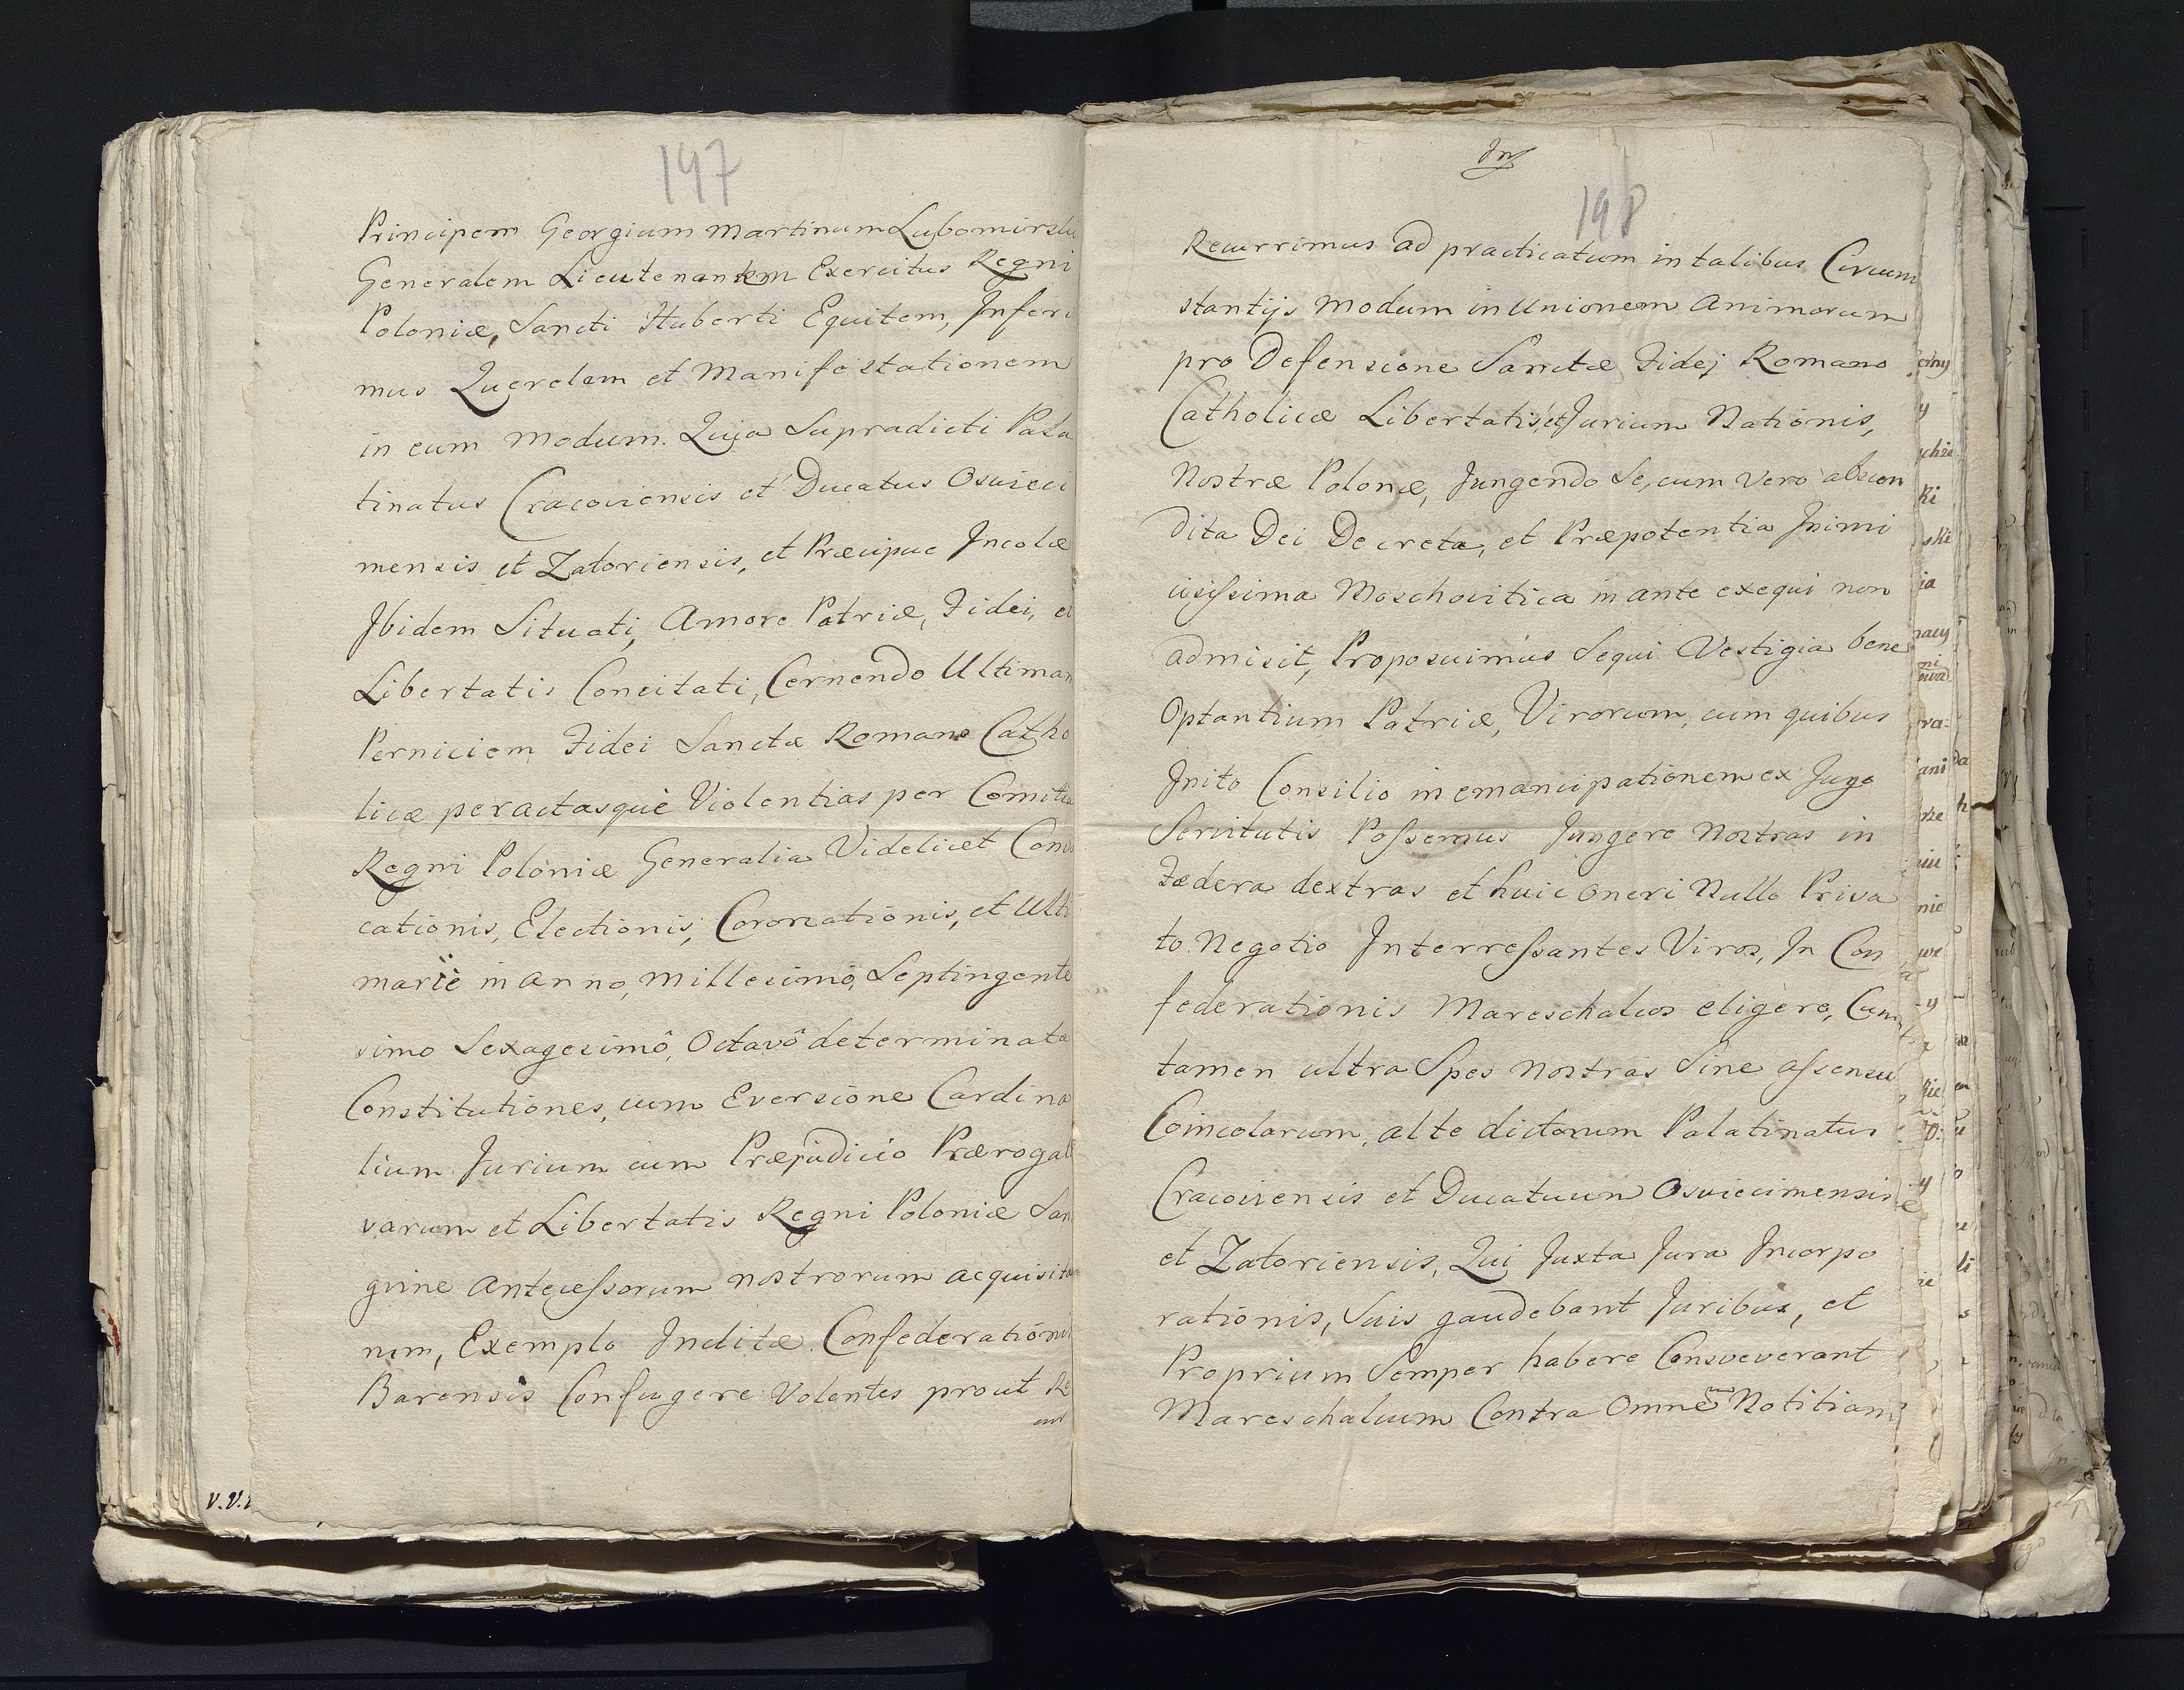 197
Principem Georgium Martinum Lubomirski
Generalem Lieutenantem Exercitus Regni
Poloniæ, Sancti Huberti Equitem, Inferi
mus Querelam et Manifestationem
in eum modum. Quia Supradicti Pala
tinatus Cracoviensis et Ducatus Osvieci
mensis et Zatoriensis, et Præcipue Incolæ
Ibidem Situati, Amore Patriæ, Fidei, et
Libertatis Concitati, Cernendo Ultimam
Perniciem Fidei Sanctæ Romano Catho
licæ peractasquè Violentias per Comitia
Regni Poloniæ Generalia Videlicet Convo
cationis, Electionis, Coronationis, et Ulti
mariè in anno, Millesimô, Septingente
simo Sexagesimô, Octavô determinata
Constitutiones, cum Eversione Cardina
lium Jurium cum Præjudicio Prærogati
varum et Libertatis Regni Poloniæ San
guine Antecessorum nostrorum acquisita
rum, Exemplo Inclitæ Confederationis
Barensis Confugere Volentes prout Re
cur
198
Recurrimus ad practicatum in talibus Circum
stantijs Modum in Unionem Animorum
pro Defensione Sanctæ Fidej Romano
Catholicæ Libertatis, et Jurium Nationis,
Nostræ Polonæ, Jungendo Se, cum Vero abscon
dita Dei Decreta, et Præpotentia Inimi
cissima Moschovitica in ante exequi non
admisit, Proposuimus Sequi Vestigia bene
Optantium Patriæ, Virorum, cum quibus
Inito Consilio in emancipationem ex Jugo
Servitutis Possemus Jungere Nostras in
Fædera dextras et huic oneri Nullo Priva
to Negotio Interressantes Viros, In Con
federationis Mareschalcos eligere, Cum
tamen ultra Spes Nostras Sine assensu
Coincolarum, alte dictorum Palatinatus
Cracoviensis et Ducatuum Osviecimensis
et Zatoriensis, Qui Juxta Jura Incorpo
rationis, Suis gaudebant Juribus, et
Proprium Semper habere Consveverant
Mareschalcum Contra Omnem Notitiam
V.V.